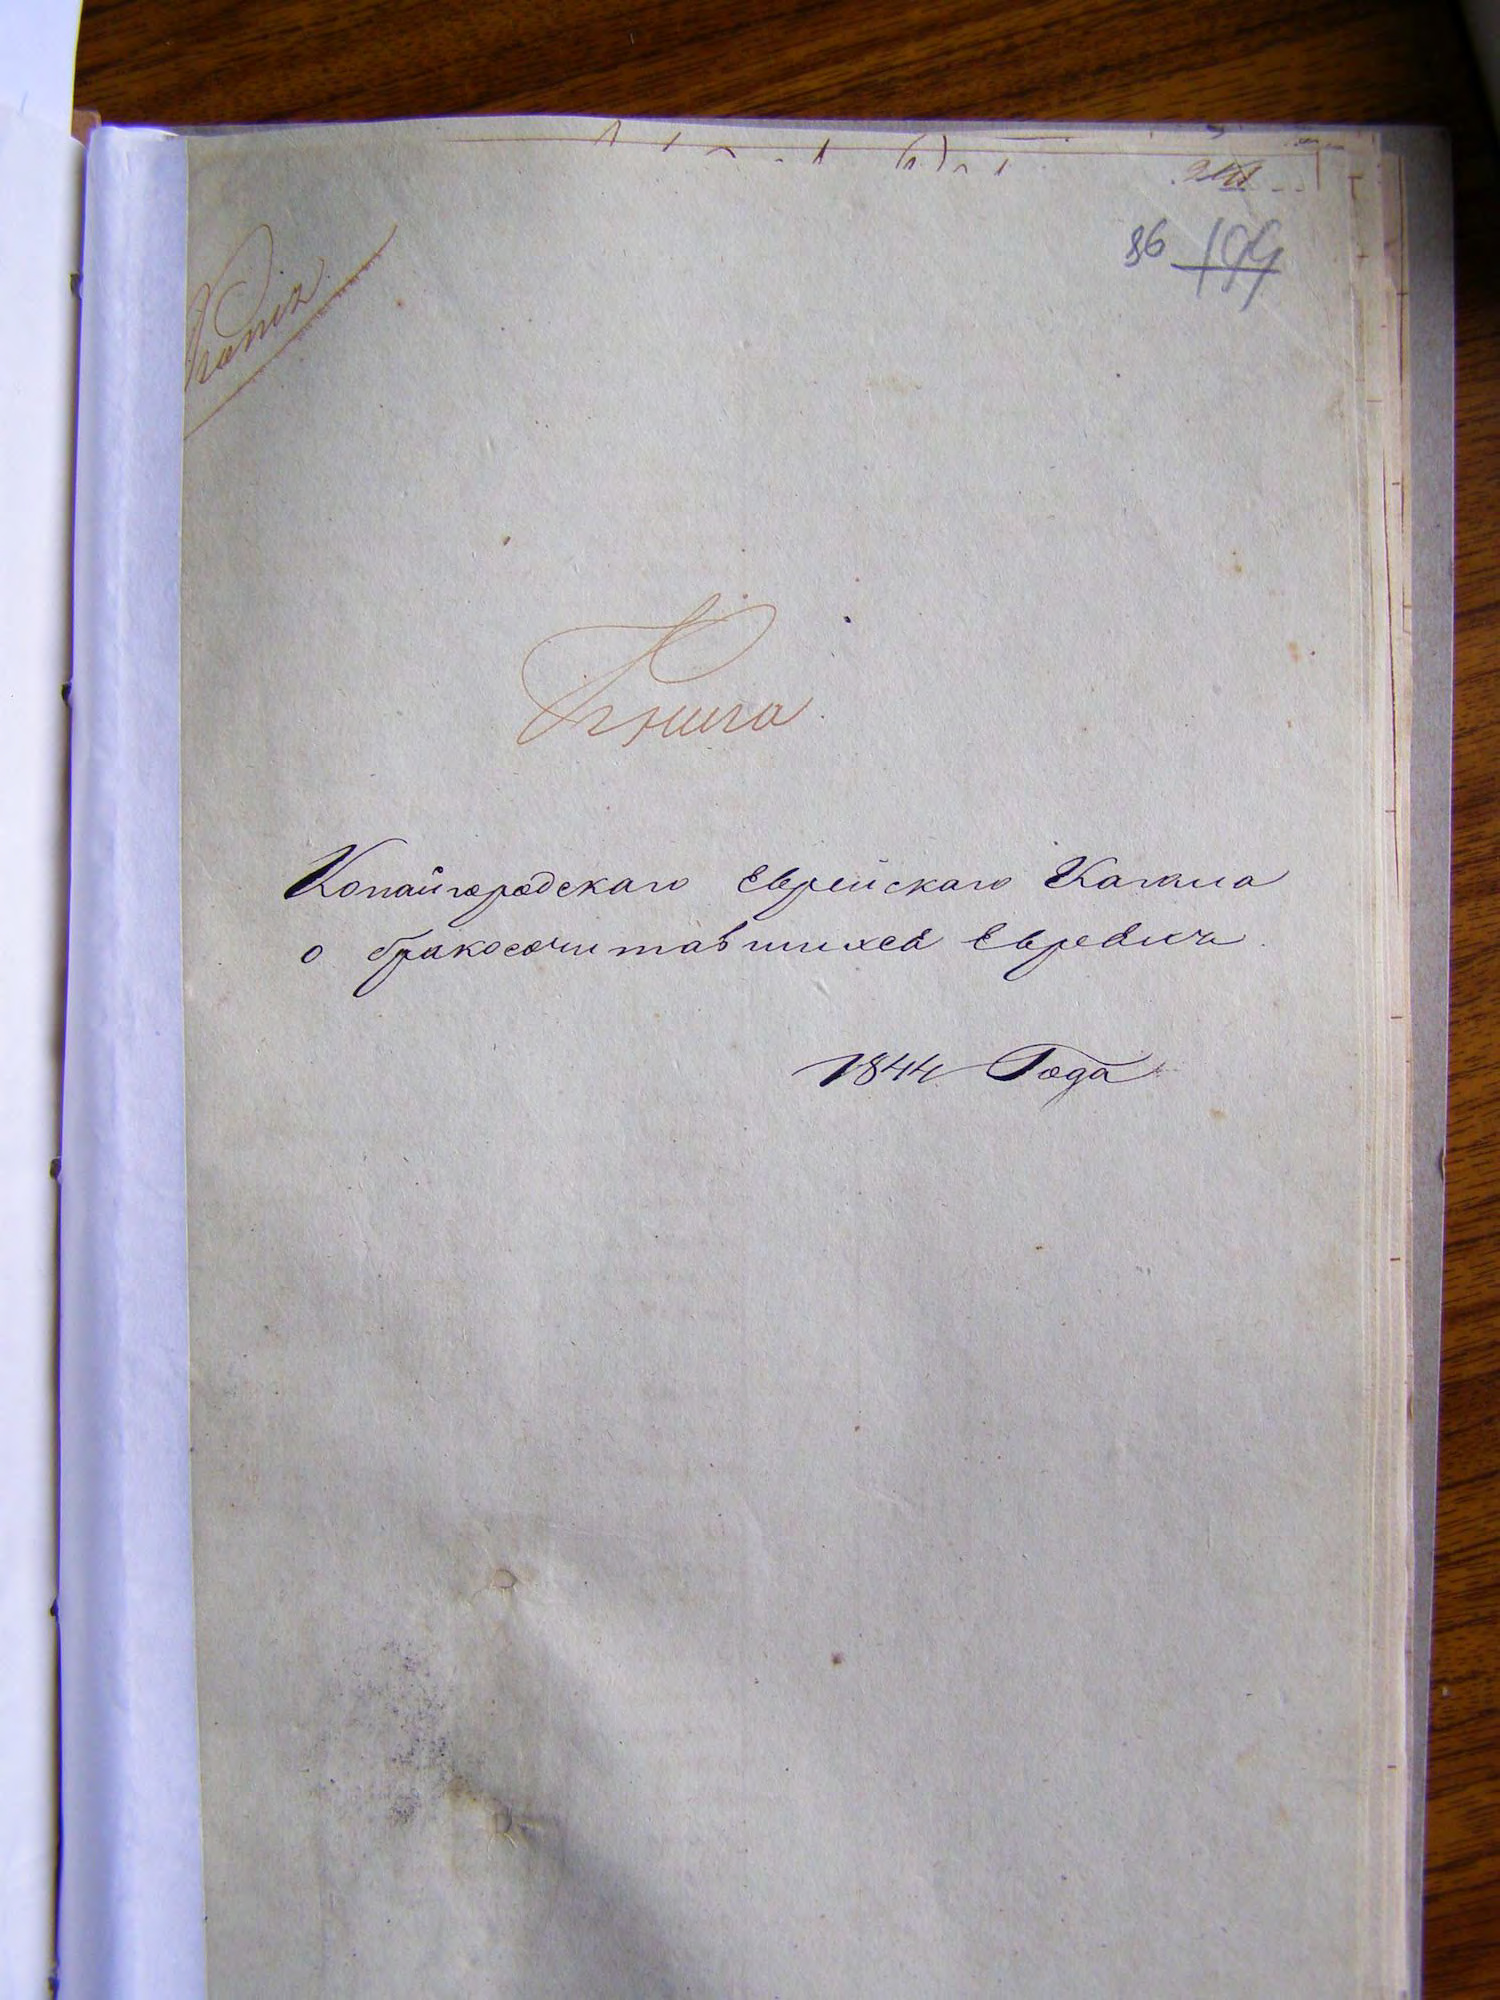 86 199
Копія
Книга
Копайгородскаго Еврейскаго Кагала
о бракосочитавшихся Евреяхъ
1844 Года